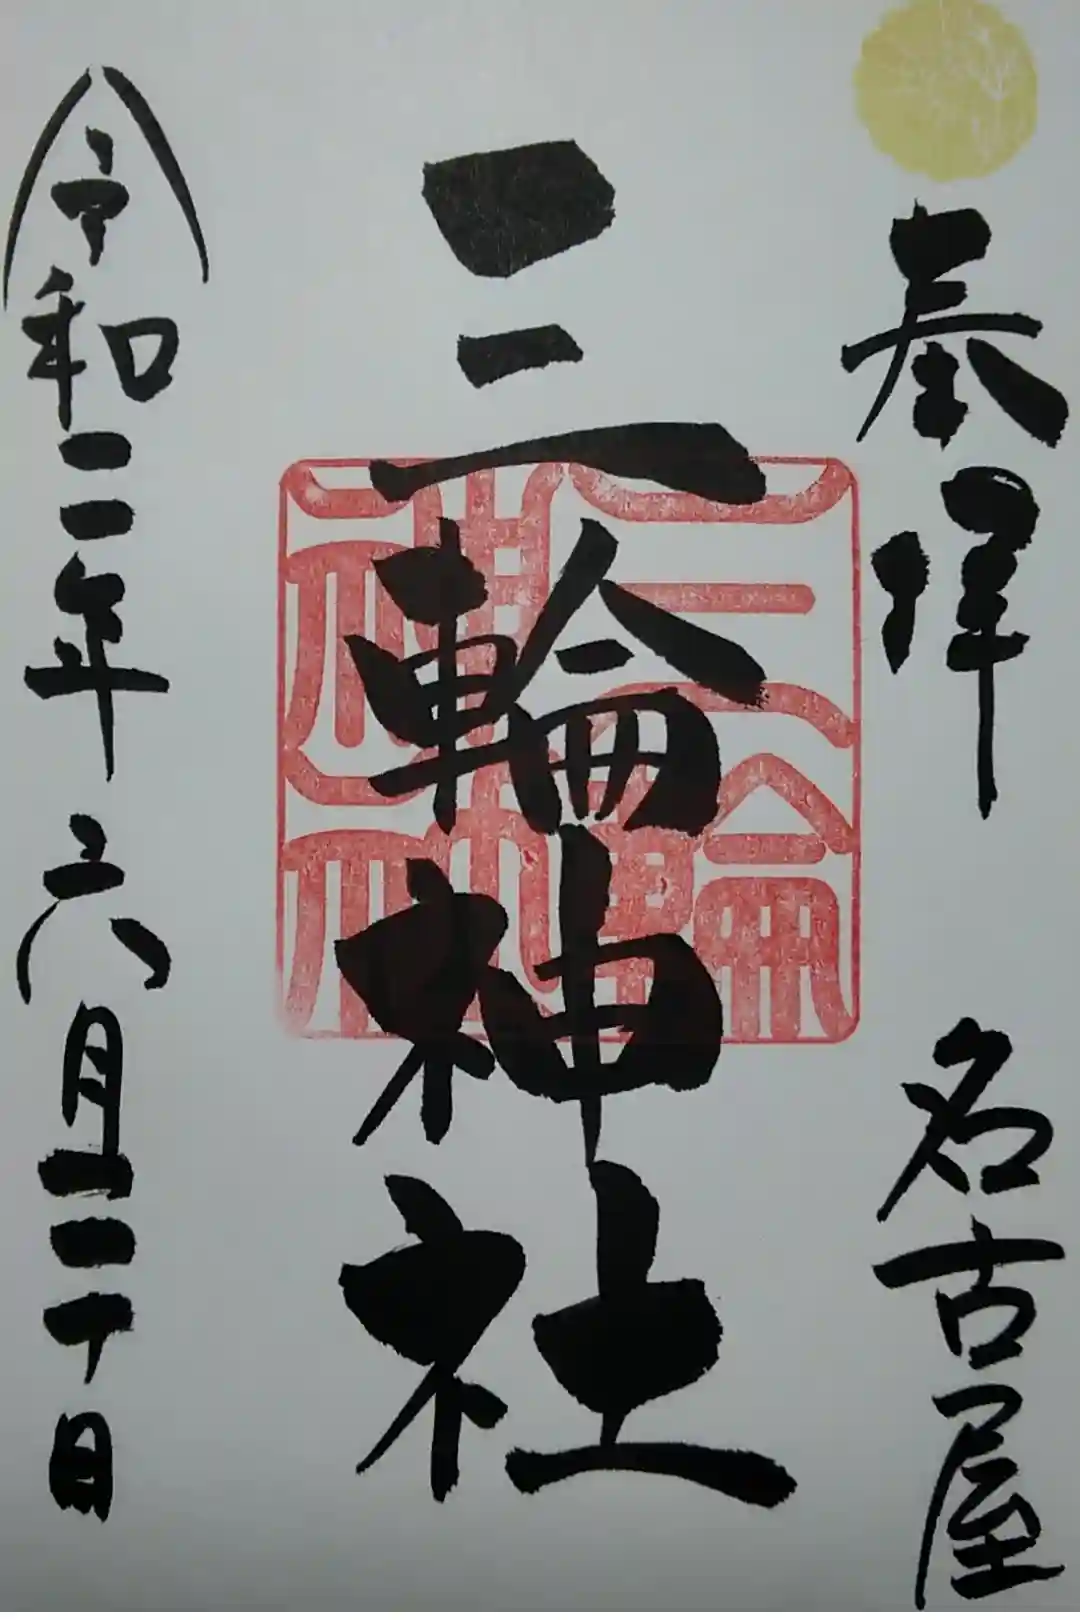 奉拝 名古屋
三輪神社
三輪神社
令和二年六月二十日